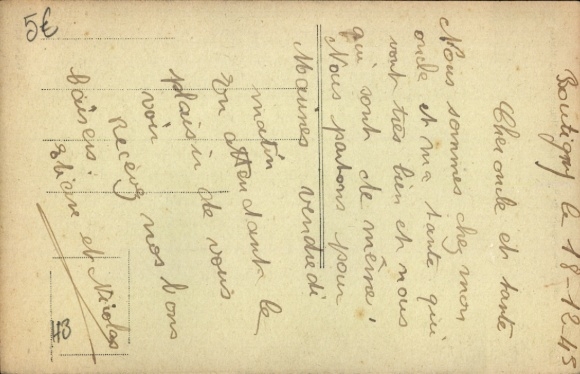 Boutigny le 18-12-45
Cher oncle et tante
Nous sommes chez mon
oncle et ma tante qui
vont très bien et nous
qui sont de même.
Nous partons pour
vendredi
matin
En attendant le
plaisir de vous
voir
recevez nos bons
baisers
Eliane et Nicolas
5€
43